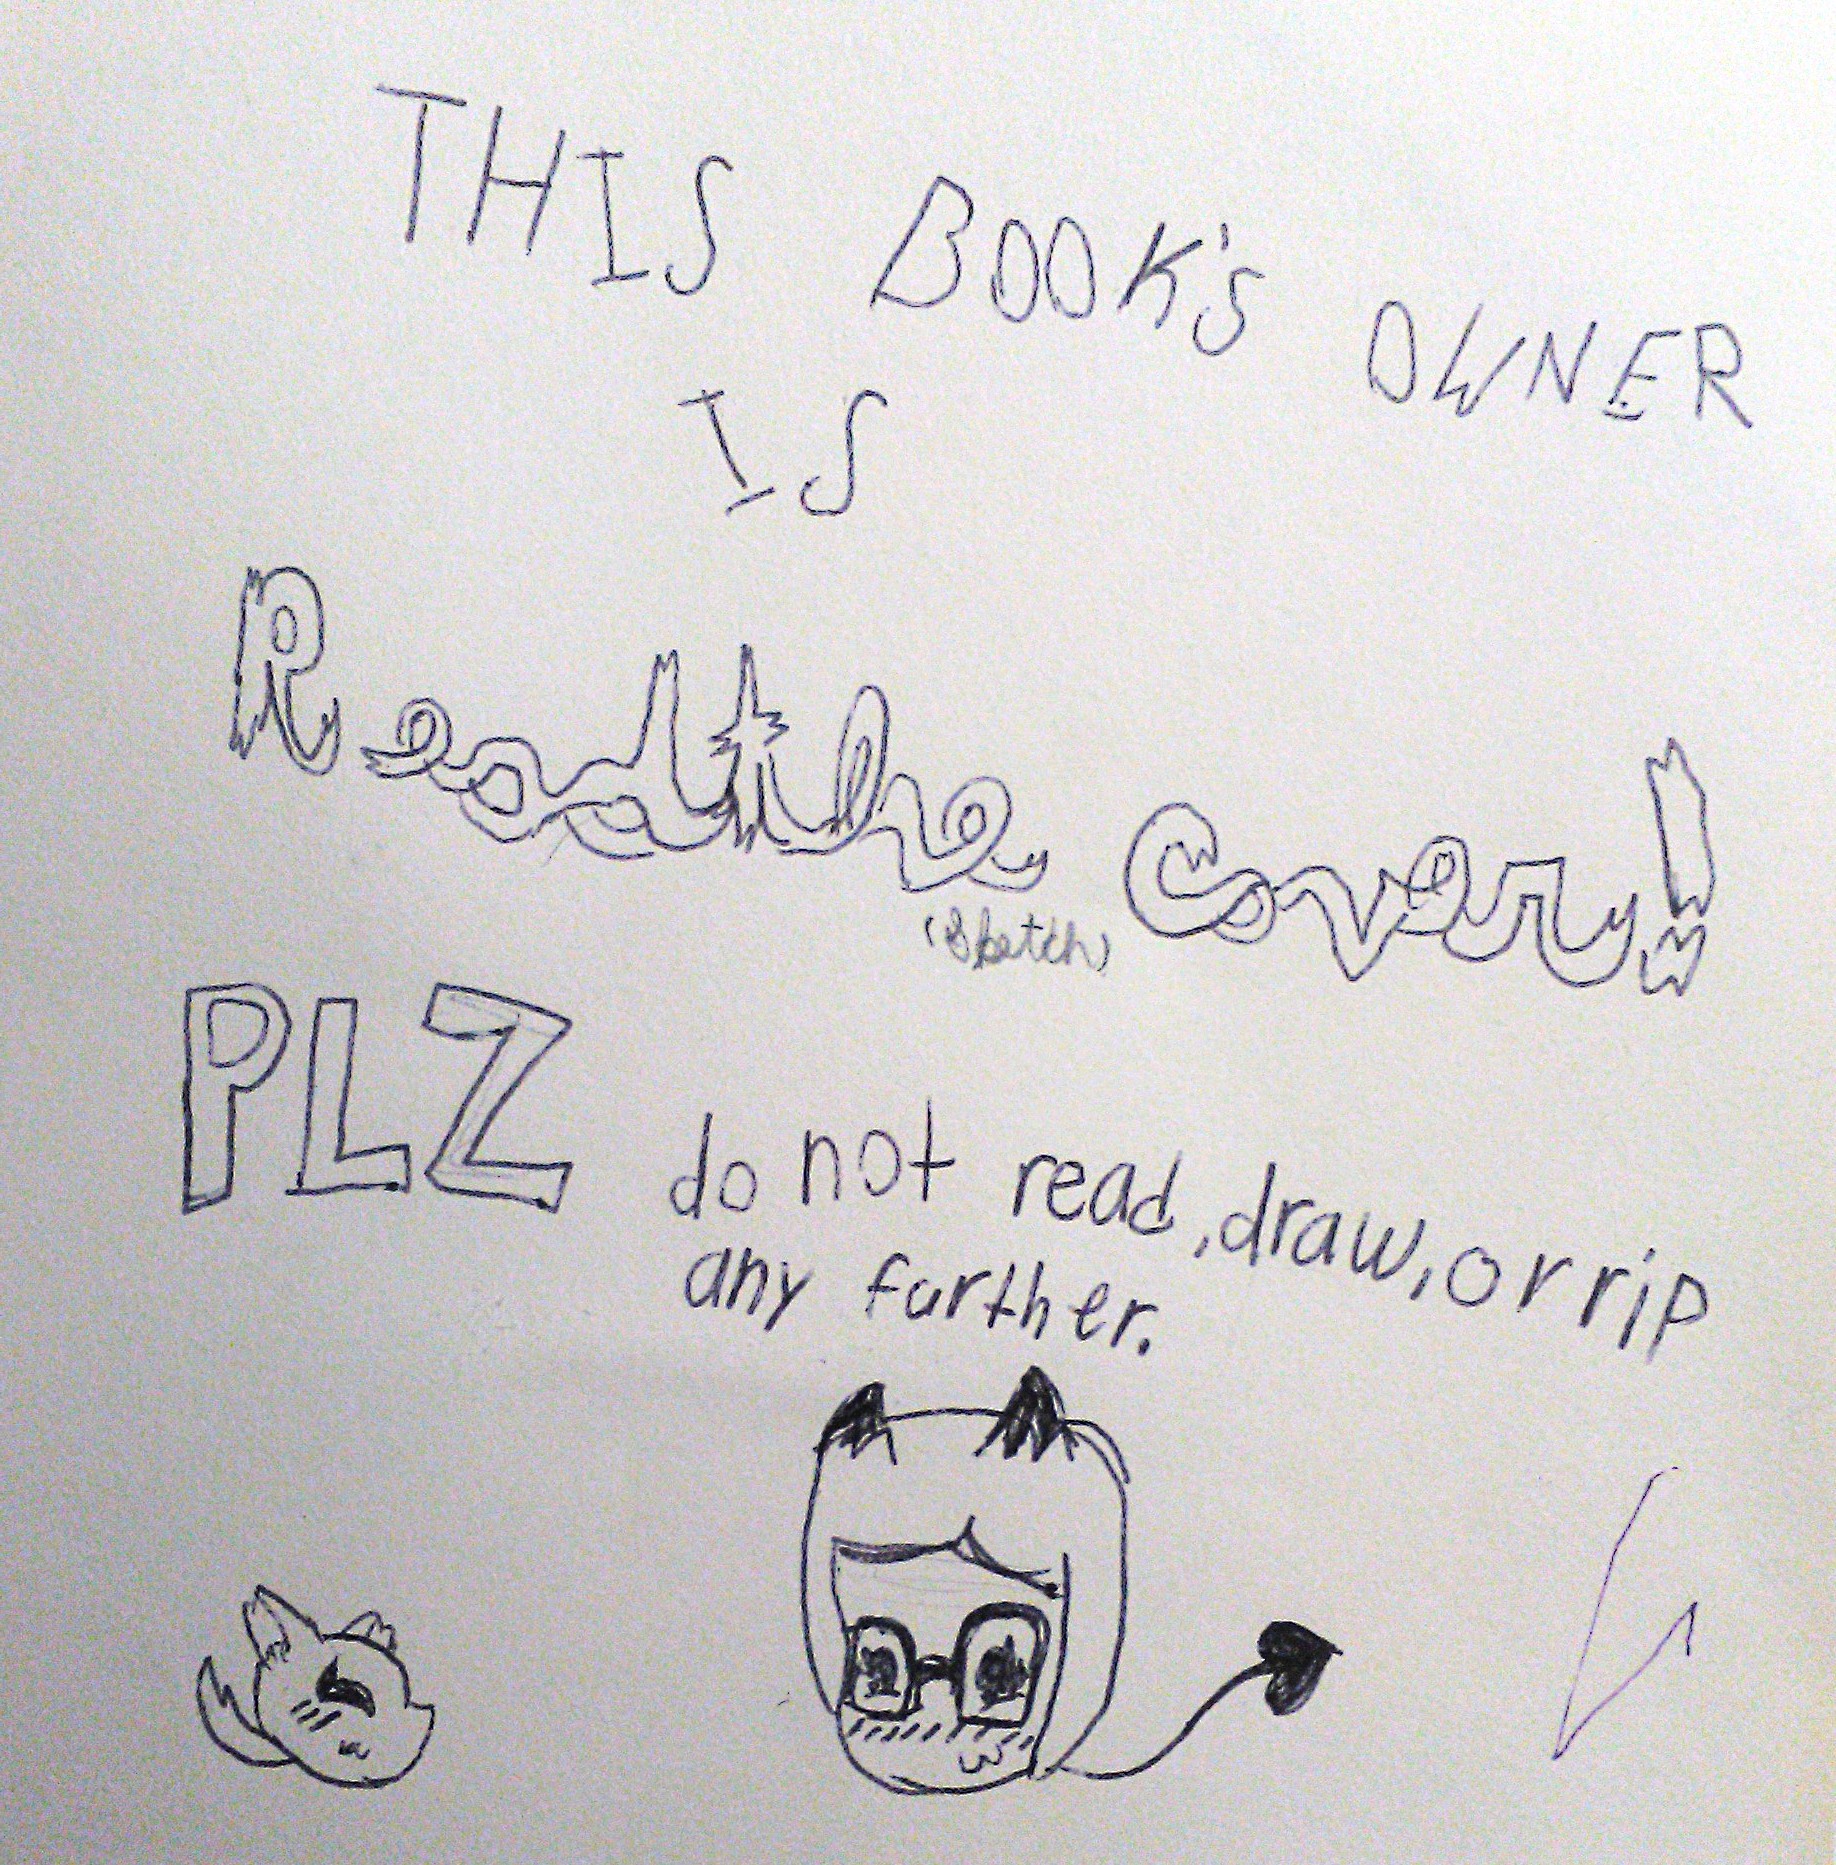 THIS BOOK'S OWNER
IS
Readthe cover!
(sketch)
PLZ do not read, draw, or rip
any further.